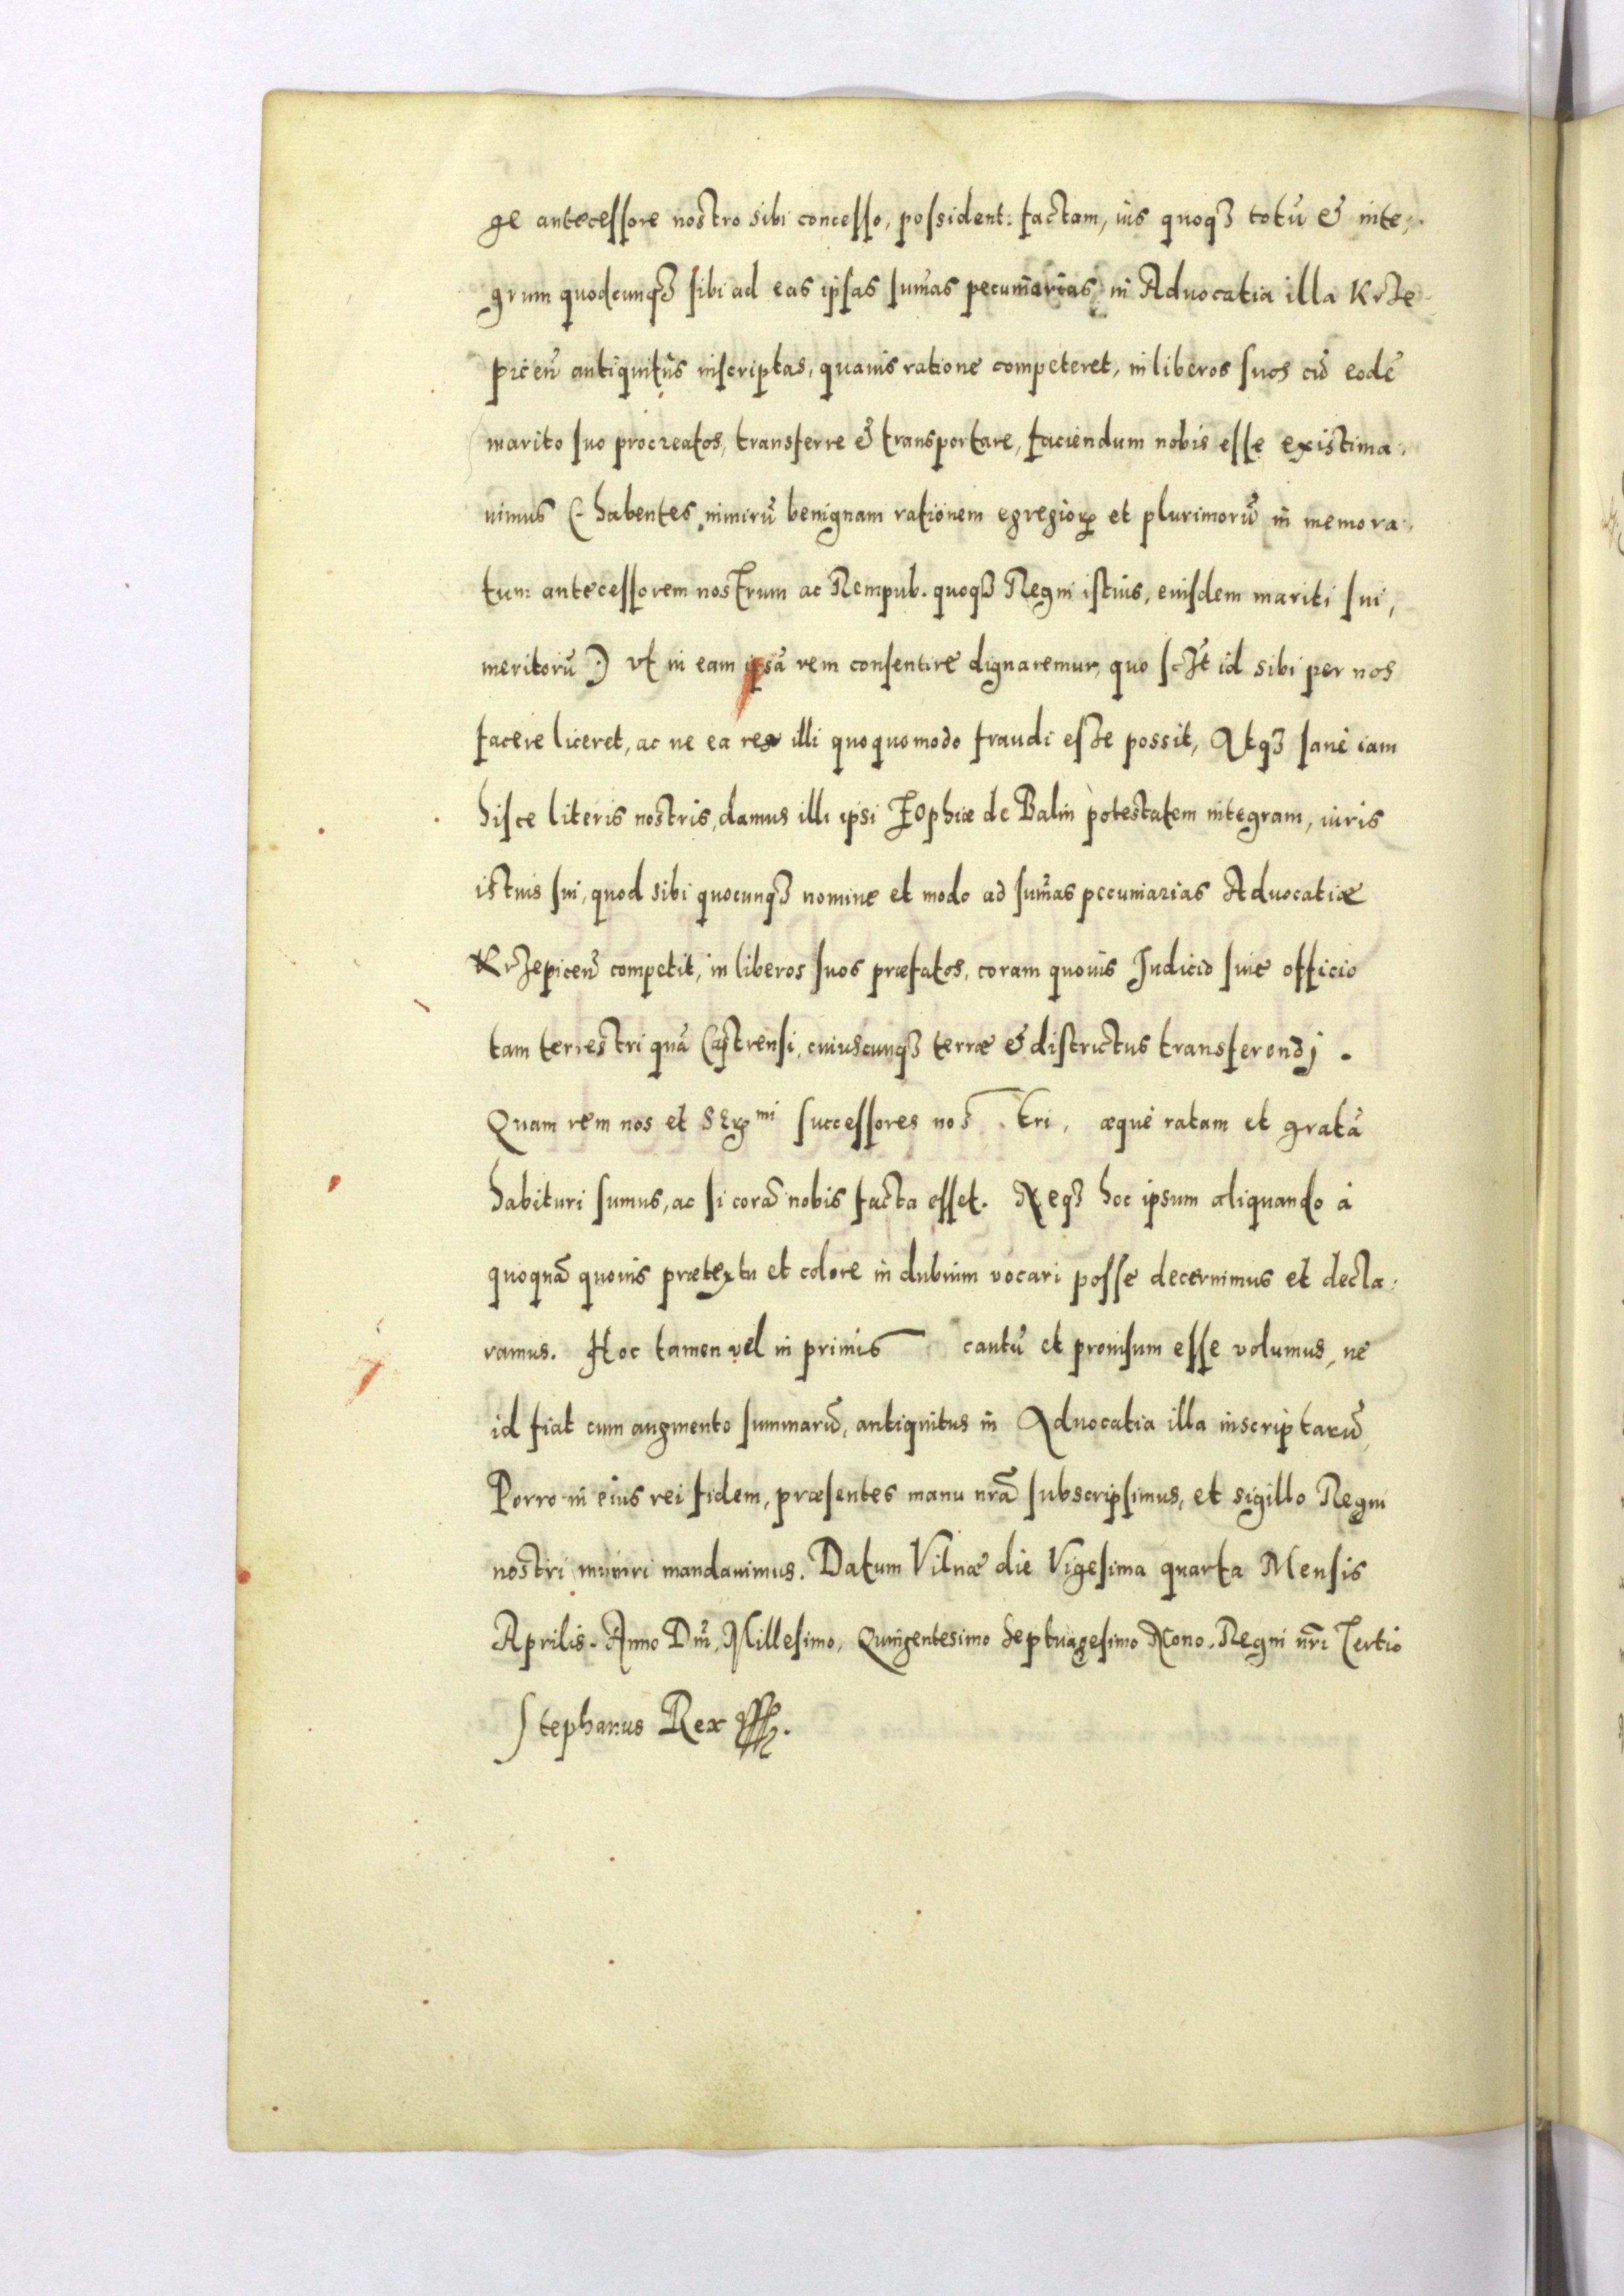 ge antecessore nostro sibi concesso, possident: factam, ius quoqꝫ totũ & inte,
grum quodcunqꝫ sibi ad eas ipsas sum̃as pecuniarias in Aduocatia illa Krze
picen̄ antiquitùs inscriptas, quauis ratione competeret, in liberos suos cũ eodẽ
marito suo procreatos, transferre & transportare, faciendum nobis esse existima,
uimus (: habentes nimirũ benignam rationem egregioꝝ et plurimorũ in memora,
tum antecessorem nostrum ac Rempub. quoqꝫ Regni istius, eiusdem mariti sui,
meritorũ :) vt in eam ipsã rem consentire dignaremur, quo sczt id sibi per nos
facere liceret, ac ne ea res illi quoquomodo fraudi esse possit, Atqꝫ sanè iam
hisce literis nostris, damus illi ipsi Zophiæ de Balin potestatem integram, iuris
istius sui, quod sibi quocunqꝫ nomine et modo ad sum̃as pecuniarias Aduocatiæ
Krzepicen̄ competit, in liberos suos præfatos, coram quouis Iudicio siue officio
tam terrestri quã Castrensi, cuiuscunqꝫ terræ & districtus transferendj.
Quam rem nos et Seꝝmi successores nostri, æquè ratam et gratã
habituri sumus, ac si corã nobis facta esset. Neqꝫ hoc ipsum aliquando à
quoquã quouis prætextu et colore in dubium vocari posse decernimus et decla,
ramus. Hoc tamen vel in primis cautũ et prouisum esse volumus, ne
id fiat cum augmento summarũ, antiquitus in Aduocatia illa inscriptarũ,
Porro in eius rei fidem, præsentes manu nr̃a subscripsimus, et sigillo Regni
nostri muniri mandauimus. Datum Vilnæ die Vigesima quarta Mensis
Aprilis. Anno Dn̄i, Millesimo, Quingentesimo Septuagesimo Nono. Regni nr̃i Tertio
Stephanus Rex